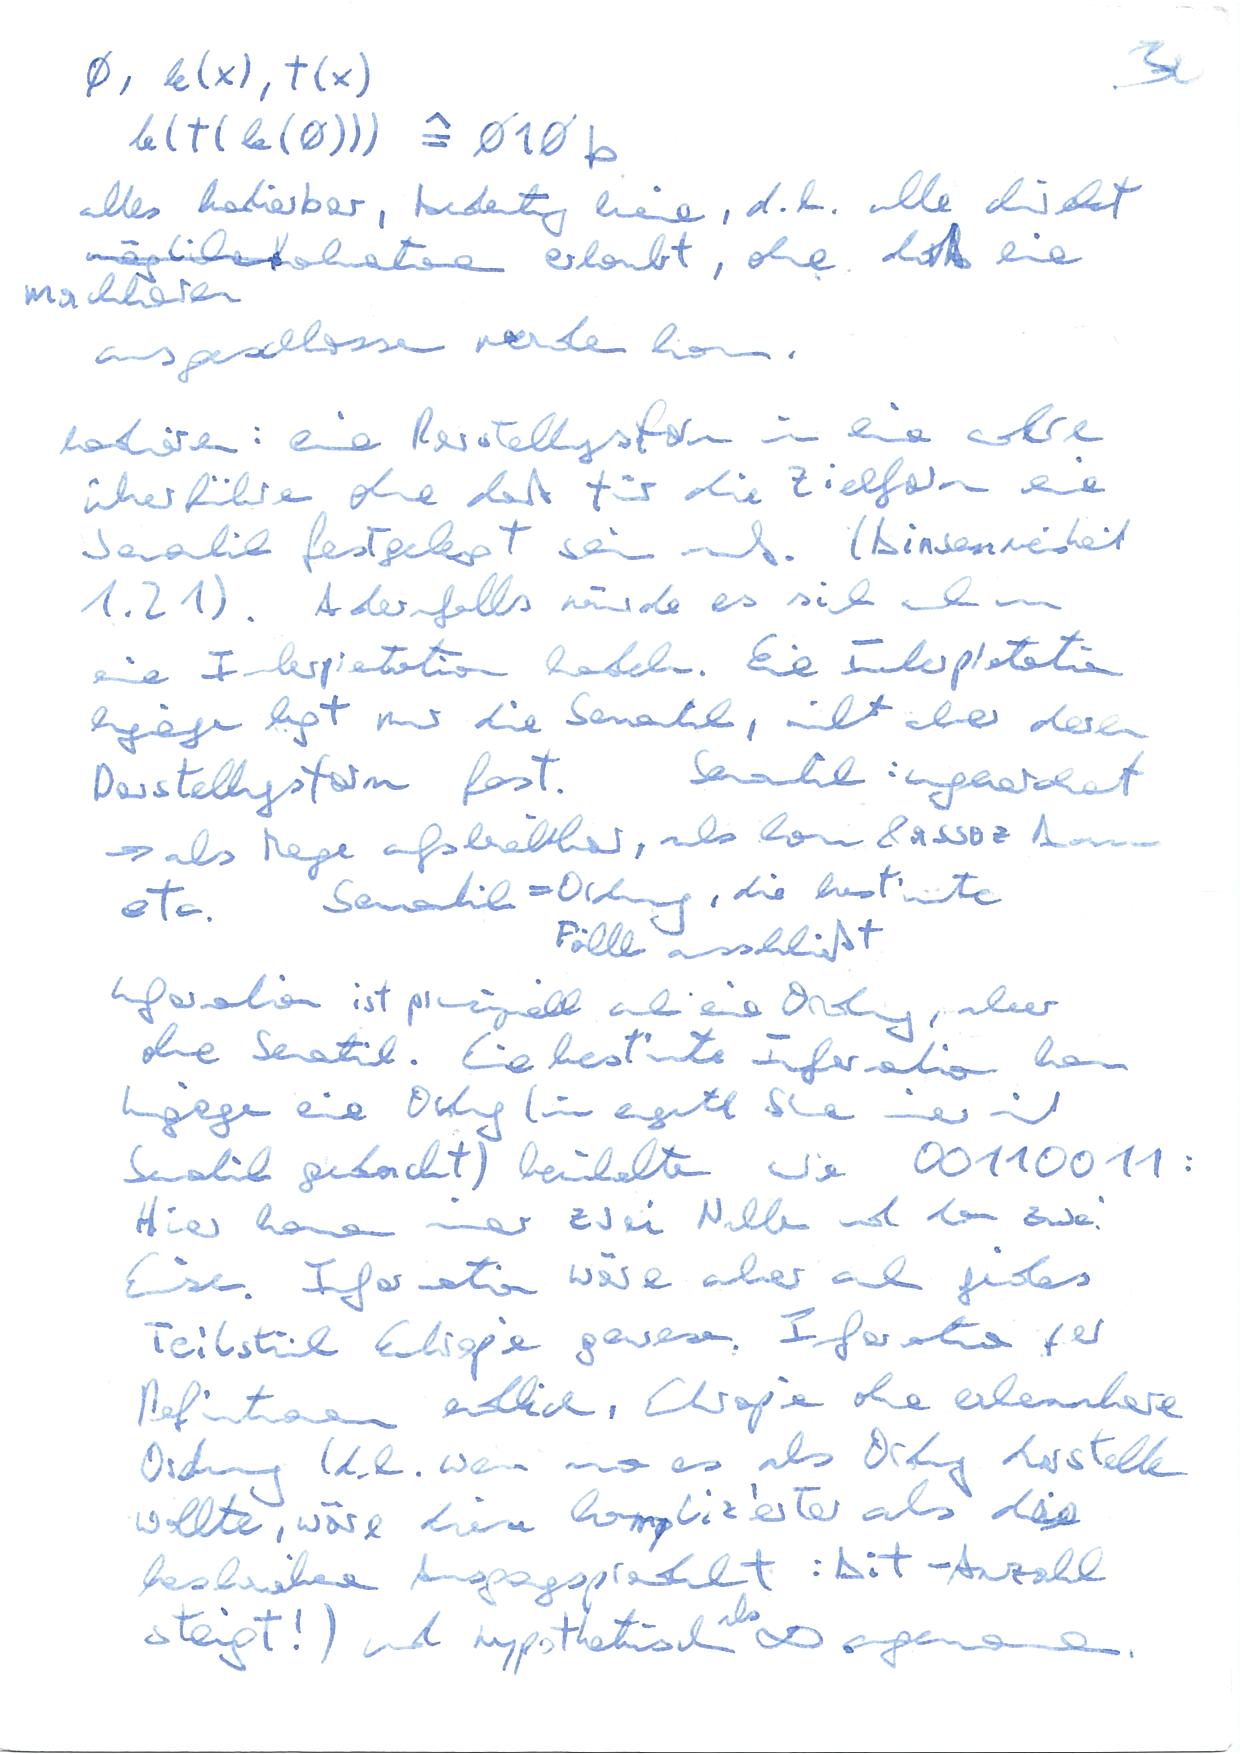 3
∅, k(x), t(x)
k(t(k(∅))) ≙ ∅1∅ b
alles kodierbar, Bedeutung keine, d.h. alle direkt
mögliche erlaubt, ohne daß eine
machbaren
ausgeschlossen werden kann.
kodieren: eine Darstellungsform in eine andere
überführen ohne daß für die Zielform eine
Semantik festgelegt sein muß. (Binsenweisheit
1.21). Andernfalls würde es sich auch um
eine Interpretation handeln. Eine Interpretation
hingegen legt nur die Semantik, nicht aber deren
Darstellungsform fest. Semantik: ungeordnet
→ als Menge aufschreibbar, als
etc. Semantik = Ordnung, die bestimmte
Fälle ausschließt
Information ist prinzipiell auch eine Ordnung, aber
ohne Semantik. Eine bestimmte Information kann
hingegen eine Ordnung (im engeren Sinne immer mit
Semantik gedacht) beinhalten wie 00110011:
Hier kommen immer zwei Nullen und dann zwei
Einsen. Information wäre aber auch jedes
Teilstück Entropie gewesen. Information per
Definitionem endlich, Entropie ohne erkennbare
Ordnung (d.h. wenn man es als Ordnung darstellen
wollte, wäre diese komplizierter als die
beschriebene : Bit-Anzahl
steigt!) und hypothetisch als ∞ angenommen.